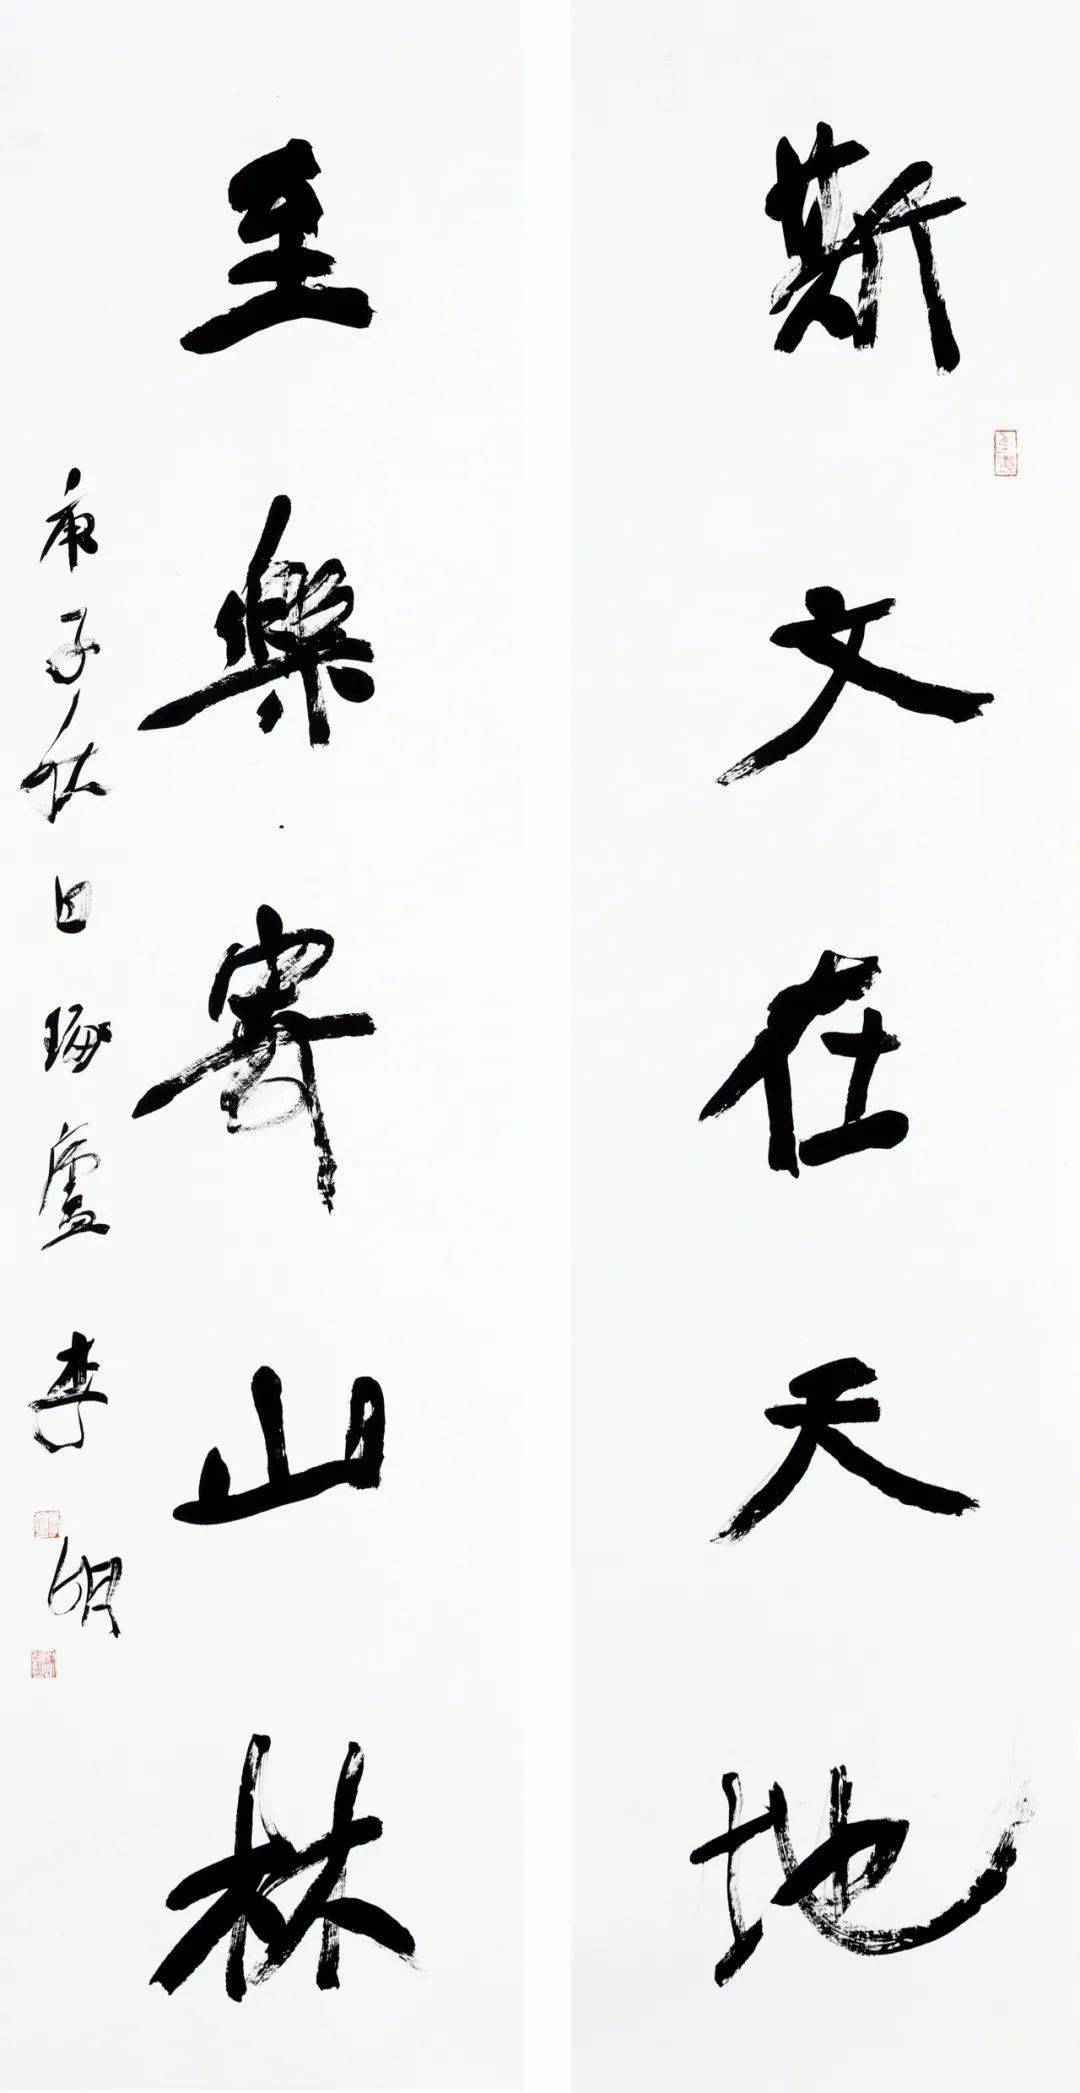 斯文在天地
至樂寄山林
庚子秋日海廬李明